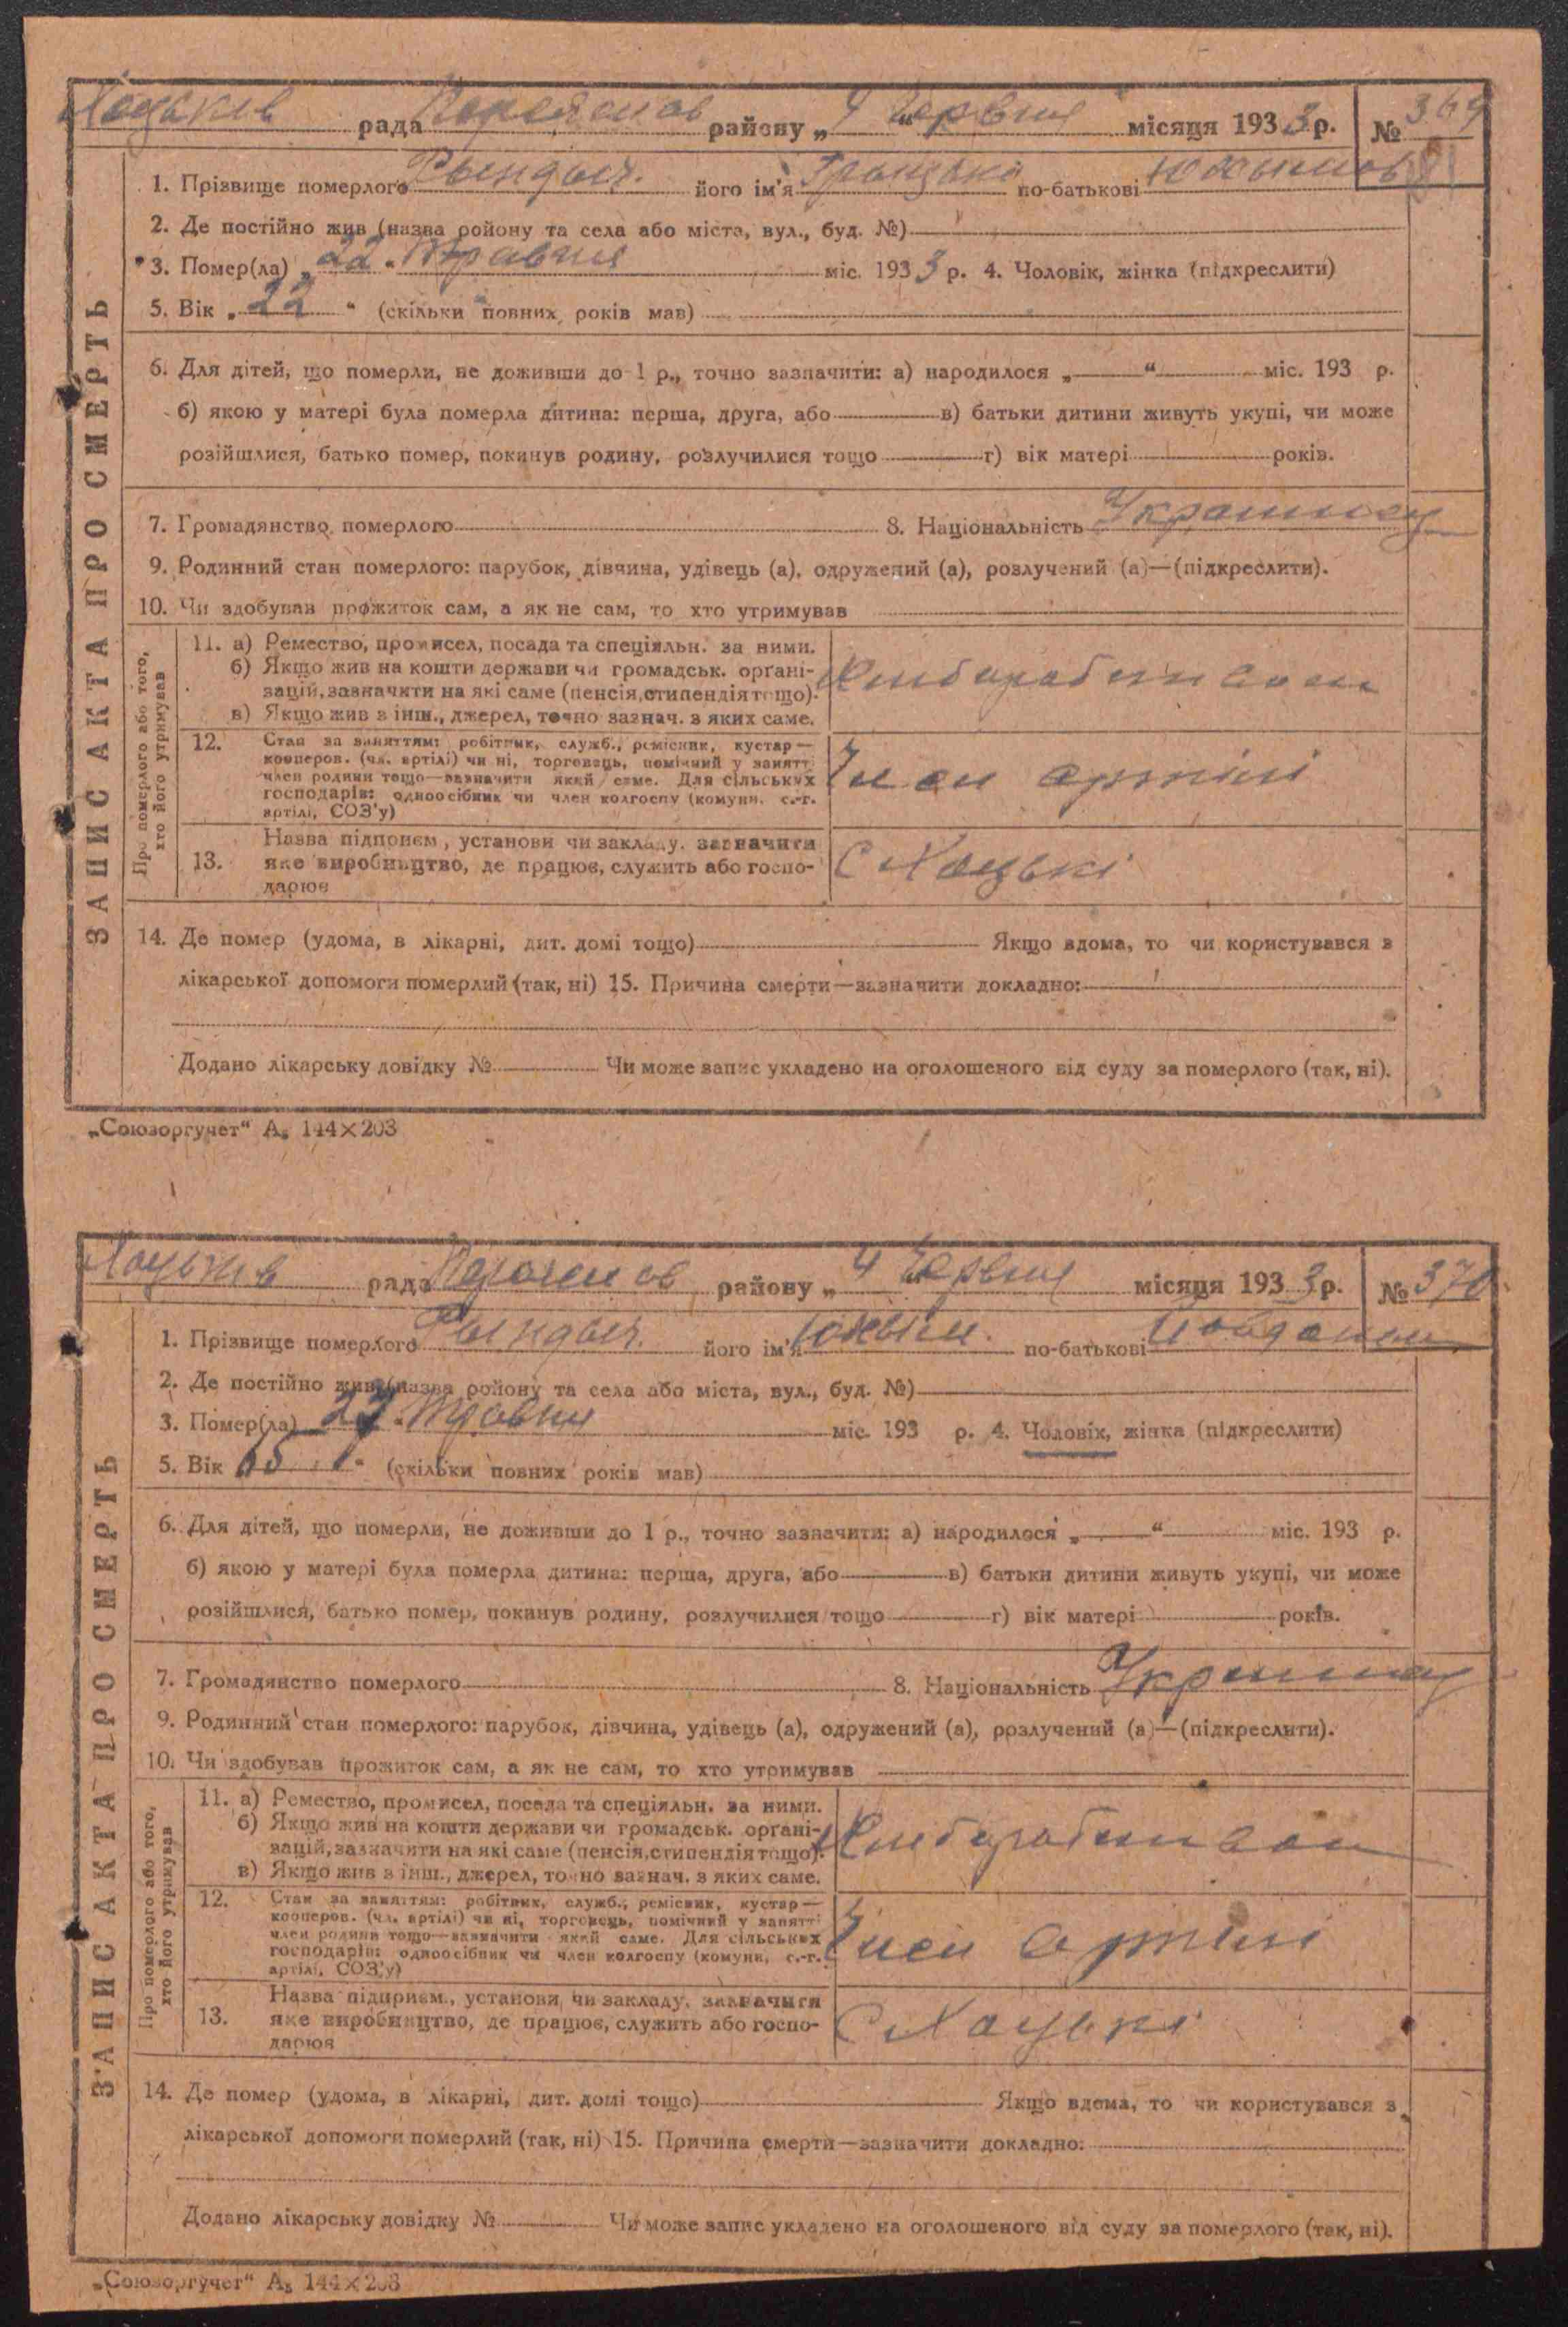 Хоцьків рада Переяслов району „4“ Червня місяця 1933 р. № 369
1. Прізвище померлого Рындыч. його ім'я Грыцько по-батькові
2. Де постійно жив (назва ройону та села або міста, вул., буд. №)
3. Помер(ла) „22“ Травня міс. 1933 р. 4. Чоловік, жінка (підкреслити)
5. Вік „22“ (скільки повних років мав)
6. Для дітей, що померли, не доживши до 1 р., точно зазначити: а) народилося „ “ міс. 193 р.
б) якою у матері була померла дитина: перша, друга, або в) батьки дитини живуть укупі, чи може
розійшлися, батько помер, покинув родину, розлучилися тощо г) вік матері років.
7. Громадянство померлого 8. Національність Украинец
9. Родинний стан померлого: парубок, дівчина, удівець (а), одружений (а), розлучений (а)—(підкреслити).
10. Чи здобував прожиток сам, а як не сам, то хто утримував
ЗАПИС АКТА ПРО СМЕРТЬ
Про померлого або того,
хто його утримував
11. а) Ремество, промисел, посада та спеціяльн. за ними.
б) Якщо жив на кошти держави чи громадськ. органі-
зацій, зазначити на які саме (пенсія, стипендія тощо).
в) Якщо жив з інш., джерел, точно зазнач. з яких саме.
12. Стан за заняттям: робітник, служб., ремісник, кустар—
кооперов. (чл. артілі) чи ні, торговець, помічний у занятті
член родини тощо—зазначити який саме. Для сільських
господарів: одноосібник чи член колгоспу (комуни, с.-г.
артілі, СОЗ'у)
Член артілі
13. Назва підприєм., установи чи закладу, зазначити
яке виробництво, де працює, служить або госпо-
дарює
С Хоцькі
14. Де помер (удома, в лікарні, дит. домі тощо) Якщо вдома, то чи користувався з
лікарської допомоги померлий (так, ні) 15. Причина смерти—зазначити докладно:
Додано лікарську довідку № Чи може запис укладено на оголошеного від суду за померлого (так, ні).
„Союзоргучет“ А₅ 144×203
Хоцьків рада Переяслов району „4“ Червня місяця 1933 р. № 370
1. Прізвище померлого Рындыч. його ім'я Юхым. по-батькові
2. Де постійно жив (назва ройону та села або міста, вул., буд. №)
3. Помер(ла) „27“ Травня міс. 193 р. 4. Чоловік, жінка (підкреслити)
5. Вік „65“ (скільки повних років мав)
6. Для дітей, що померли, не доживши до 1 р., точно зазначити: а) народилося „ “ міс. 193 р.
б) якою у матері була померла дитина: перша, друга, або в) батьки дитини живуть укупі, чи може
розійшлися, батько помер, покинув родину, розлучилися тощо г) вік матері років.
7. Громадянство померлого 8. Національність Украинец
9. Родинний стан померлого: парубок, дівчина, удівець (а), одружений (а), розлучений (а)—(підкреслити).
10. Чи здобував прожиток сам, а як не сам, то хто утримував
ЗАПИС АКТА ПРО СМЕРТЬ
Про померлого або того,
хто його утримував
11. а) Ремество, промисел, посада та спеціяльн. за ними.
б) Якщо жив на кошти держави чи громадськ. органі-
зацій, зазначити на які саме (пенсія, стипендія тощо).
в) Якщо жив з інш., джерел, точно зазнач. з яких саме.
12. Стан за заняттям: робітник, служб., ремісник, кустар—
кооперов. (чл. артілі) чи ні, торговець, помічний у занятті
член родини тощо—зазначити який саме. Для сільських
господарів: одноосібник чи член колгоспу (комуни, с.-г.
артілі, СОЗ'у)
Член артілі
13. Назва підприєм., установи чи закладу, зазначити
яке виробництво, де працює, служить або госпо-
дарює
С Хоцькі
14. Де помер (удома, в лікарні, дит. домі тощо) Якщо вдома, то чи користувався з
лікарської допомоги померлий (так, ні) 15. Причина смерти—зазначити докладно:
Додано лікарську довідку № Чи може запис укладено на оголошеного від суду за померлого (так, ні).
„Союзоргучет“ А₅ 144×203